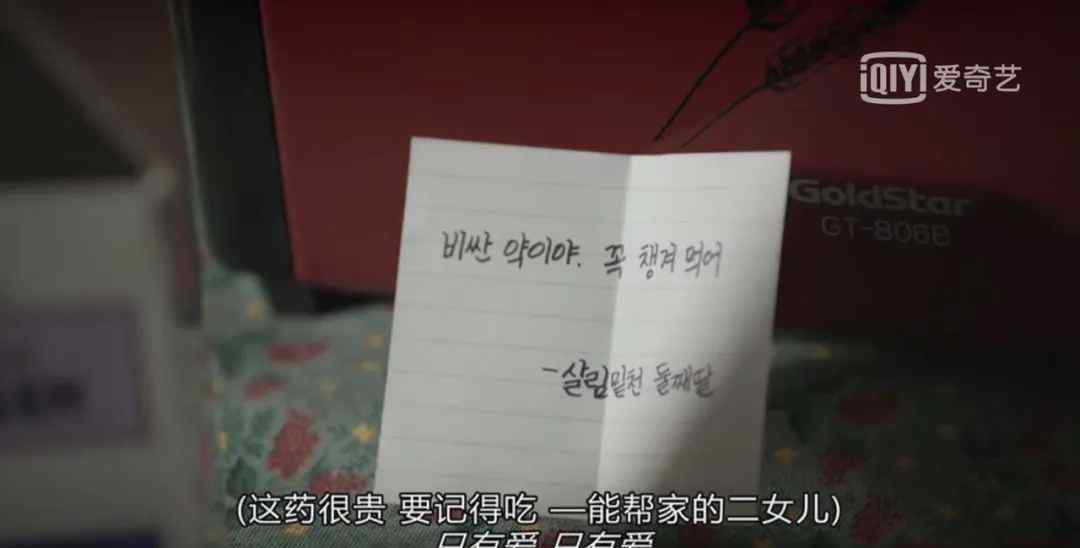 iQIYI 爱奇艺
GoldStar
GT-806B
비싼 약이야. 꼭 챙겨 먹어
-살림밑천 둘째딸
(这药很贵 要记得吃 —能帮家的二女儿)
只有爱 只有爱